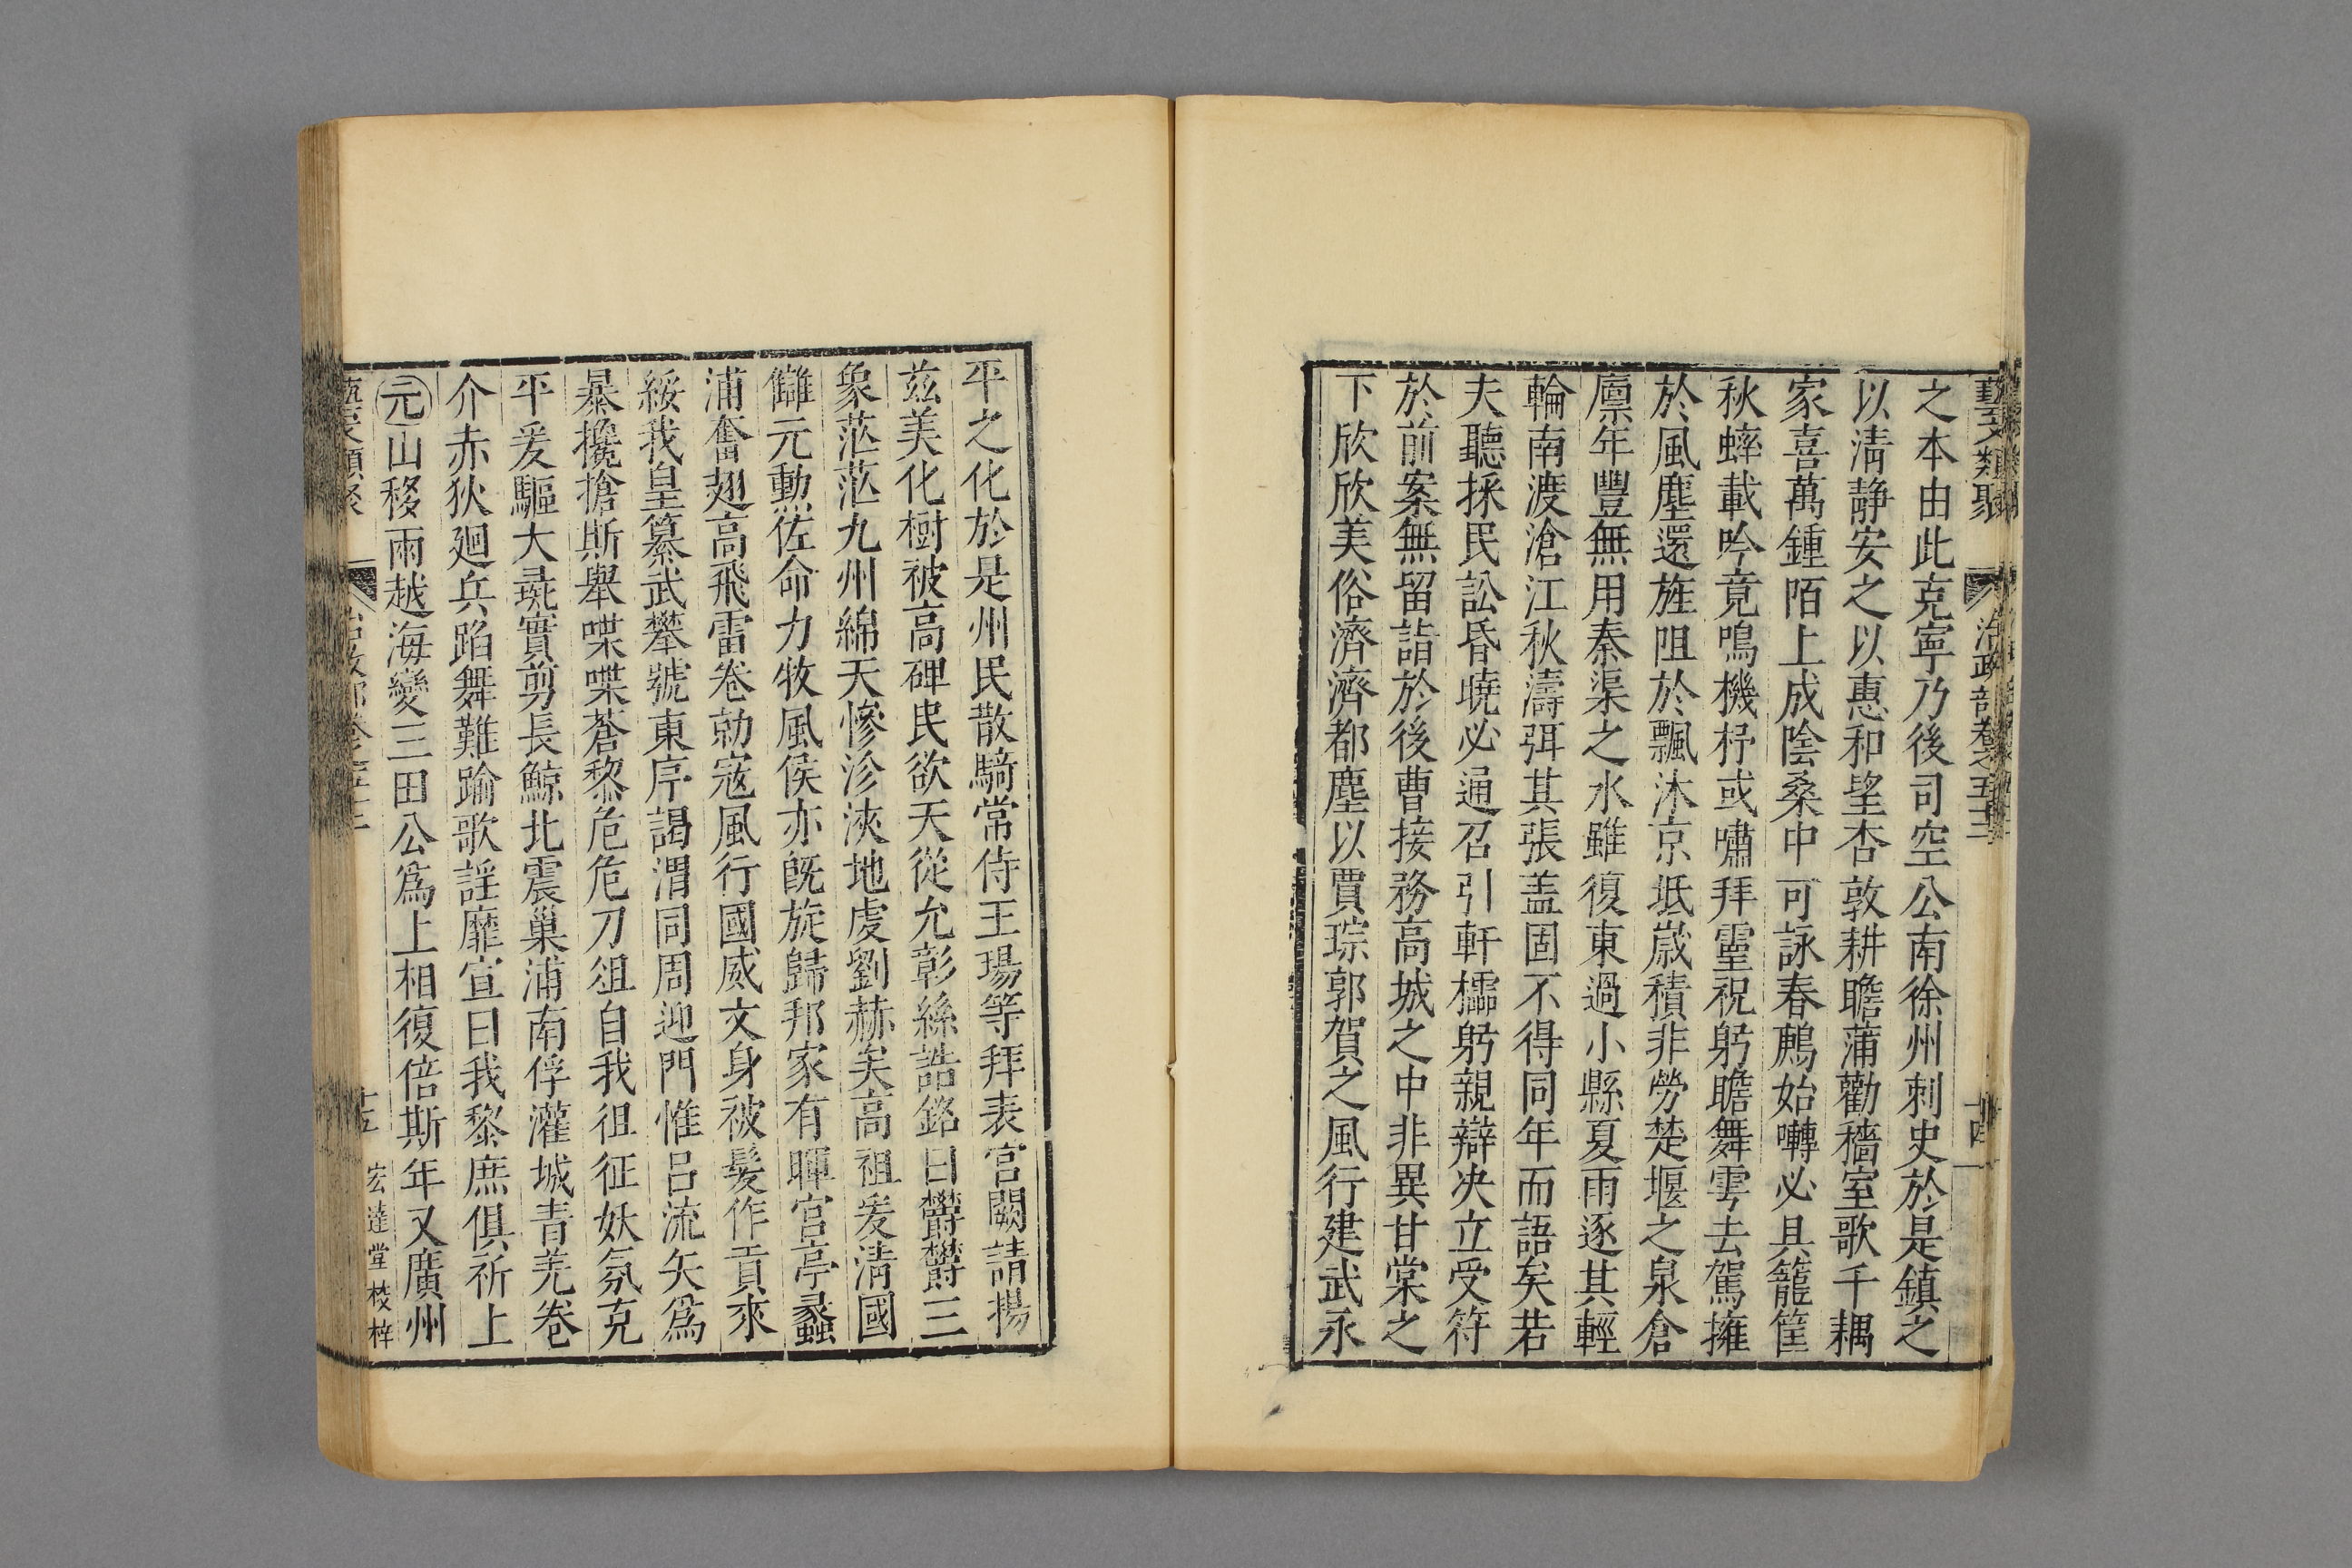 藝文類聚 治政部卷之五十二 十四
之本由此克寧乃後司空公南徐州刺史於是鎮之
以清静安之以惠和望杏敦耕瞻蒲勸穡室歌千耦
家喜萬鍾陌上成陰桑中可詠春鳸始囀必具籠筐
秋蟀載吟竟鳴機杼或嘯拜靈祝躬瞻舞雩去駕擁
於風塵還旌阻於飄沐京坻嵗積非勞楚堰之泉倉
廪年豐無用秦渠之水雖復東過小縣夏雨逐其輕
輪南渡滄江秋濤弭其張盖固不得同年而語矣若
夫聽採民訟昏曉必通召引軒櫺躬親辯决立受符
於前案無留詣於後曹接務高城之中非異甘棠之
下欣欣美俗濟濟都塵以賈琮郭賀之風行建武永
平之化於是州民散騎常侍王瑒等拜表宫闕請揚
兹美化樹被高碑民欲天從允彰絲誥銘曰欝欝三
象茫茫九州綿天慘沴浹地虔劉赫矣高祖爰清國
讎元勲佐命力牧風侯亦旣旋歸邦家有暉宫亭蠡
浦奮翅高飛雷卷勍寇風行國威文身被髮作貢來
綏我皇纂武攀號東序謁渭同周迎門惟呂流矢為
暴攙搶斯舉喋喋蒼黎危危刀俎自我徂征妖氛克
平爰驅大彘實剪長鯨北震巢浦南俘灌城青羌卷
介赤狄廻兵蹈舞難踰歌謡靡宣曰我黎庶俱祈上
元山移兩越海變三田公爲上相復倍斯年又廣州
十五 宏達堂校梓